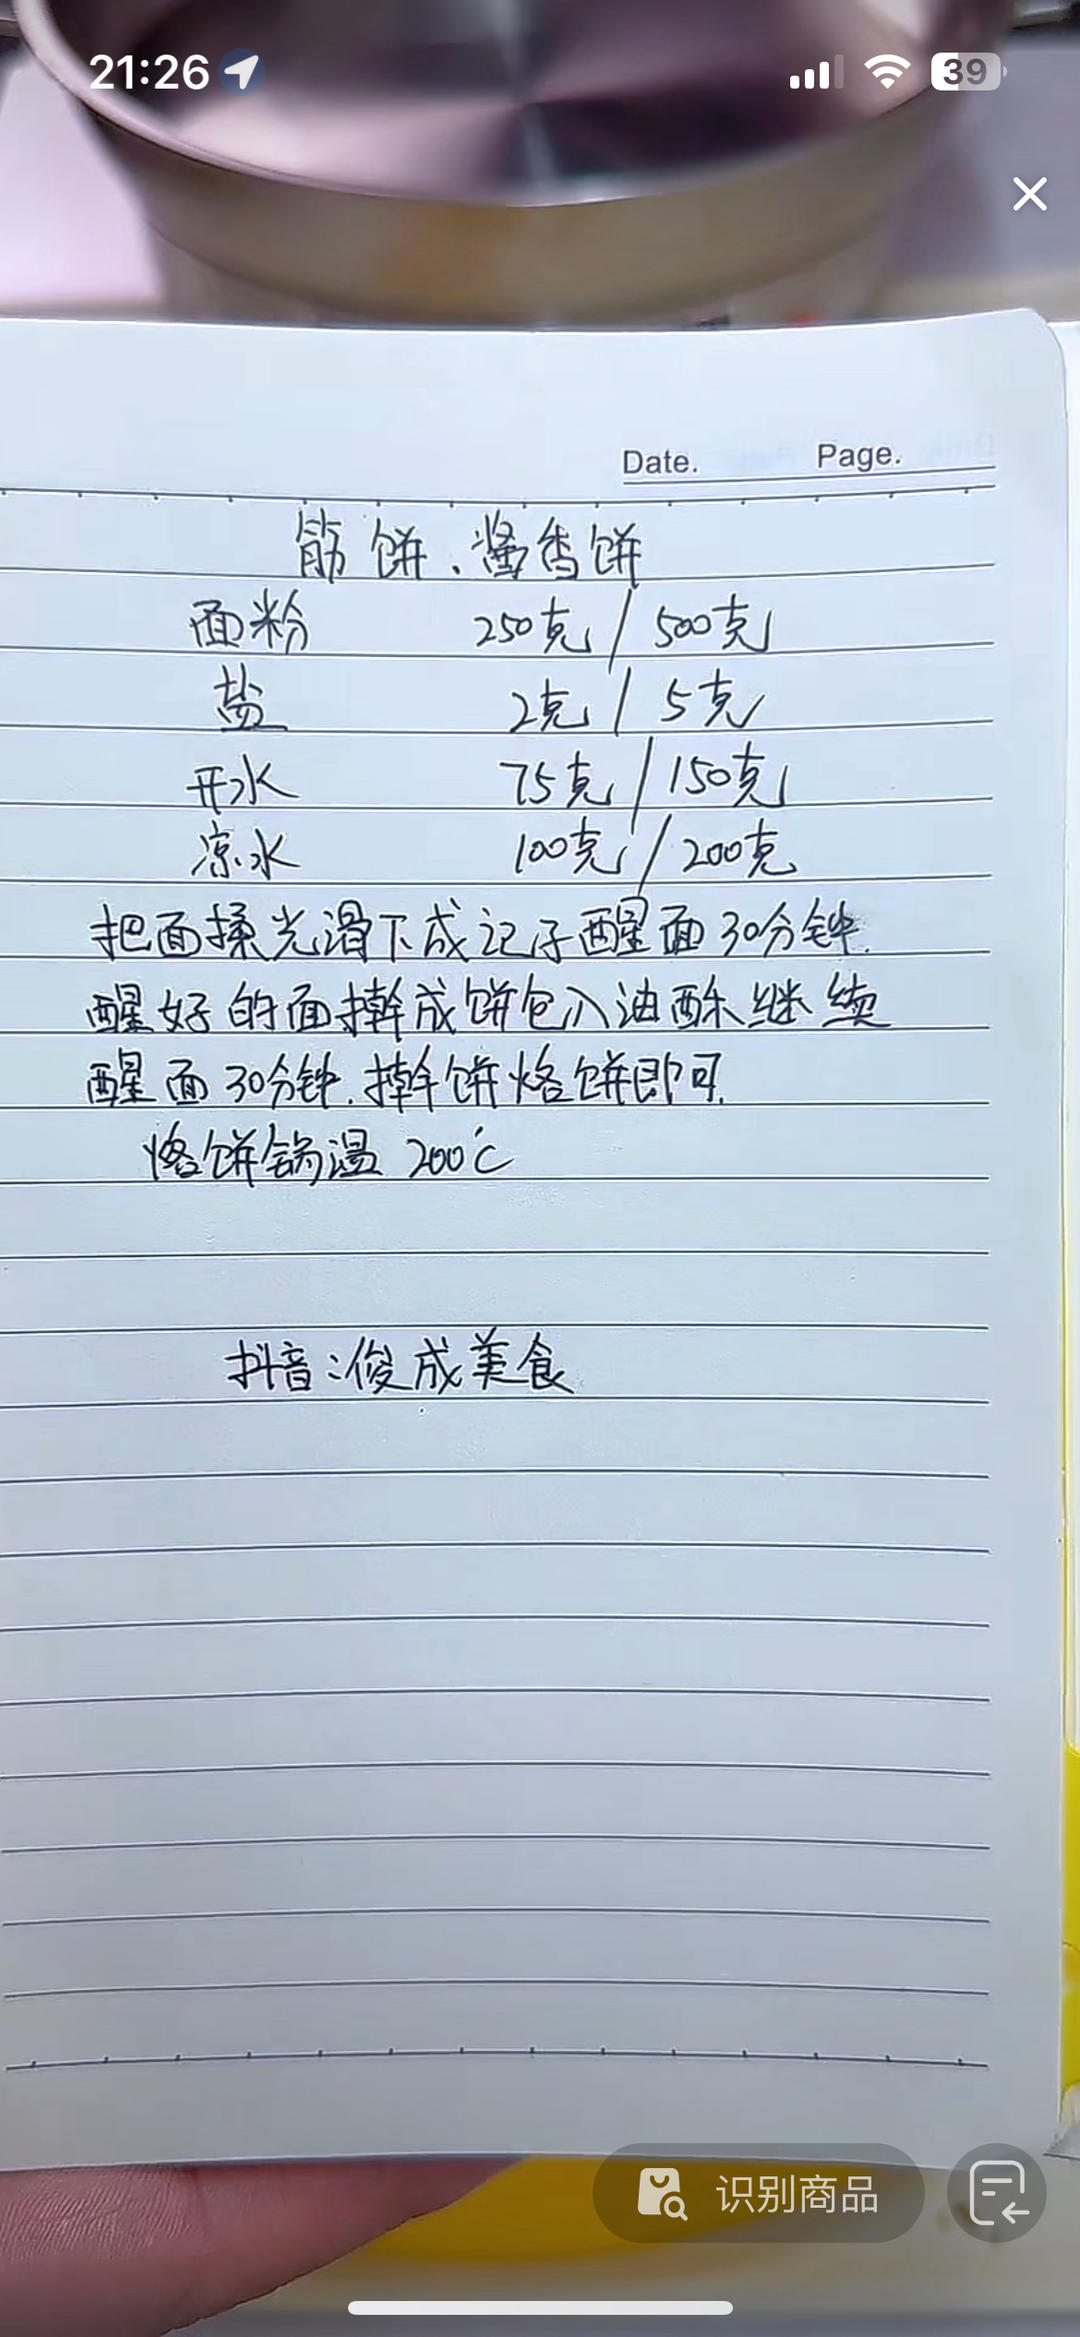 21:26
39
Date. Page.
筋饼、酱香饼
面粉 250克/500克
盐 2克/5克
开水 75克/150克
凉水 100克/200克
把面揉光滑下成记子醒面30分钟.
醒好的面擀成饼包入油酥继续
醒面30分钟.擀饼烙饼即可.
烙饼锅温 200℃
抖音:俊成美食
识别商品